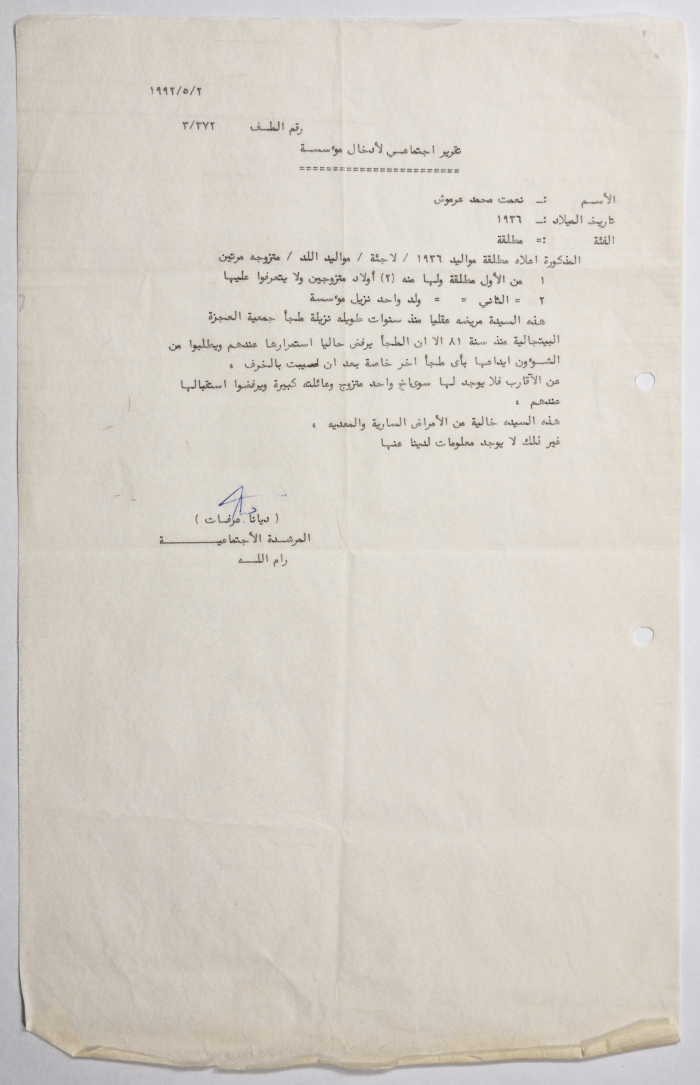 ١٩٩٢/٥/٢
رقم الملف ٣/٣٧٢
تقرير اجتماعي لأدخال مؤسسة
=======================
الأسم :ـ نعمت محمد عرموش
تاريخ الميلاد :ـ ١٩٣٦
الفئة := مطلقة
المذكورة اعلاه مطلقة مواليد ١٩٣٦ / لاجئة / مواليد اللد / متزوجه مرتين
١ من الأول مطلقة ولها منه (٢) أولاد متزوجين ولا يتعرفوا عليها
٢ = الثاني = = ولد واحد نزيل مؤسسة
هذه السيدة مريضه عقليا منذ سنوات طويله نزيلة ملجأ جمعية العجزة
البيتجالية منذ سنة ٨١ الا ان الملجأ يرفض حاليا استمرارها عندهم ويطلبوا من
الشؤون ايداعها بأى ملجأ اخر خاصة بعد ان اصيبت بالخرف ،
عن الأقارب فلا يوجد لها سوى اخ واحد متزوج وعائلته كبيرة ويرفضوا استقبالها
عندهم ،
هذه السيده خالية من الأمراض السارية والمعديه ،
غير ذلك لا يوجد معلومات لدينا عنها
( ديانا عرفات )
المرشدة الأجتماعيــــــة
رام اللــه